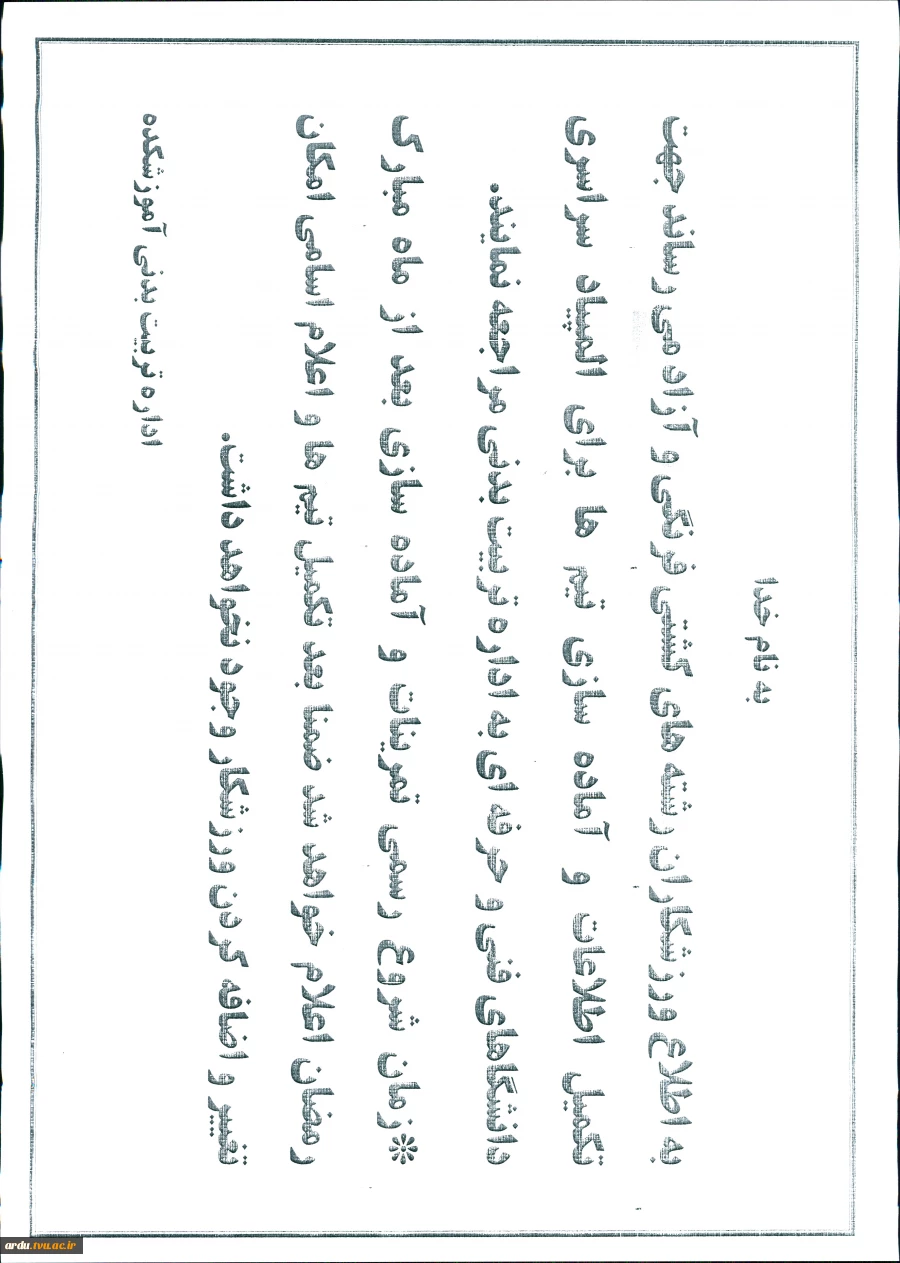 به نام خدا
به اطلاع ورزشکاران رشته های کشتی فرنگی و آزاد می رساند جهت
تکمیل اطلاعات و آماده سازی تیم ها برای المپیاد سراسری
دانشگاهای فنی و حرفه ای به اداره تربیت بدنی مراجعه نمایند.
*زمان شروع رسمی تمرینات و آماده سازی بعد از ماه مبارک
رمضان اعلام خواهد شد ضمنا بعد تکمیل تیم ها و اعلام اسامی امکان
تغییر و اضافه کردن ورزشکار وجود نخواهد داشت.
اداره تربیت بدنی آموزشکده
ardu.tvu.ac.ir